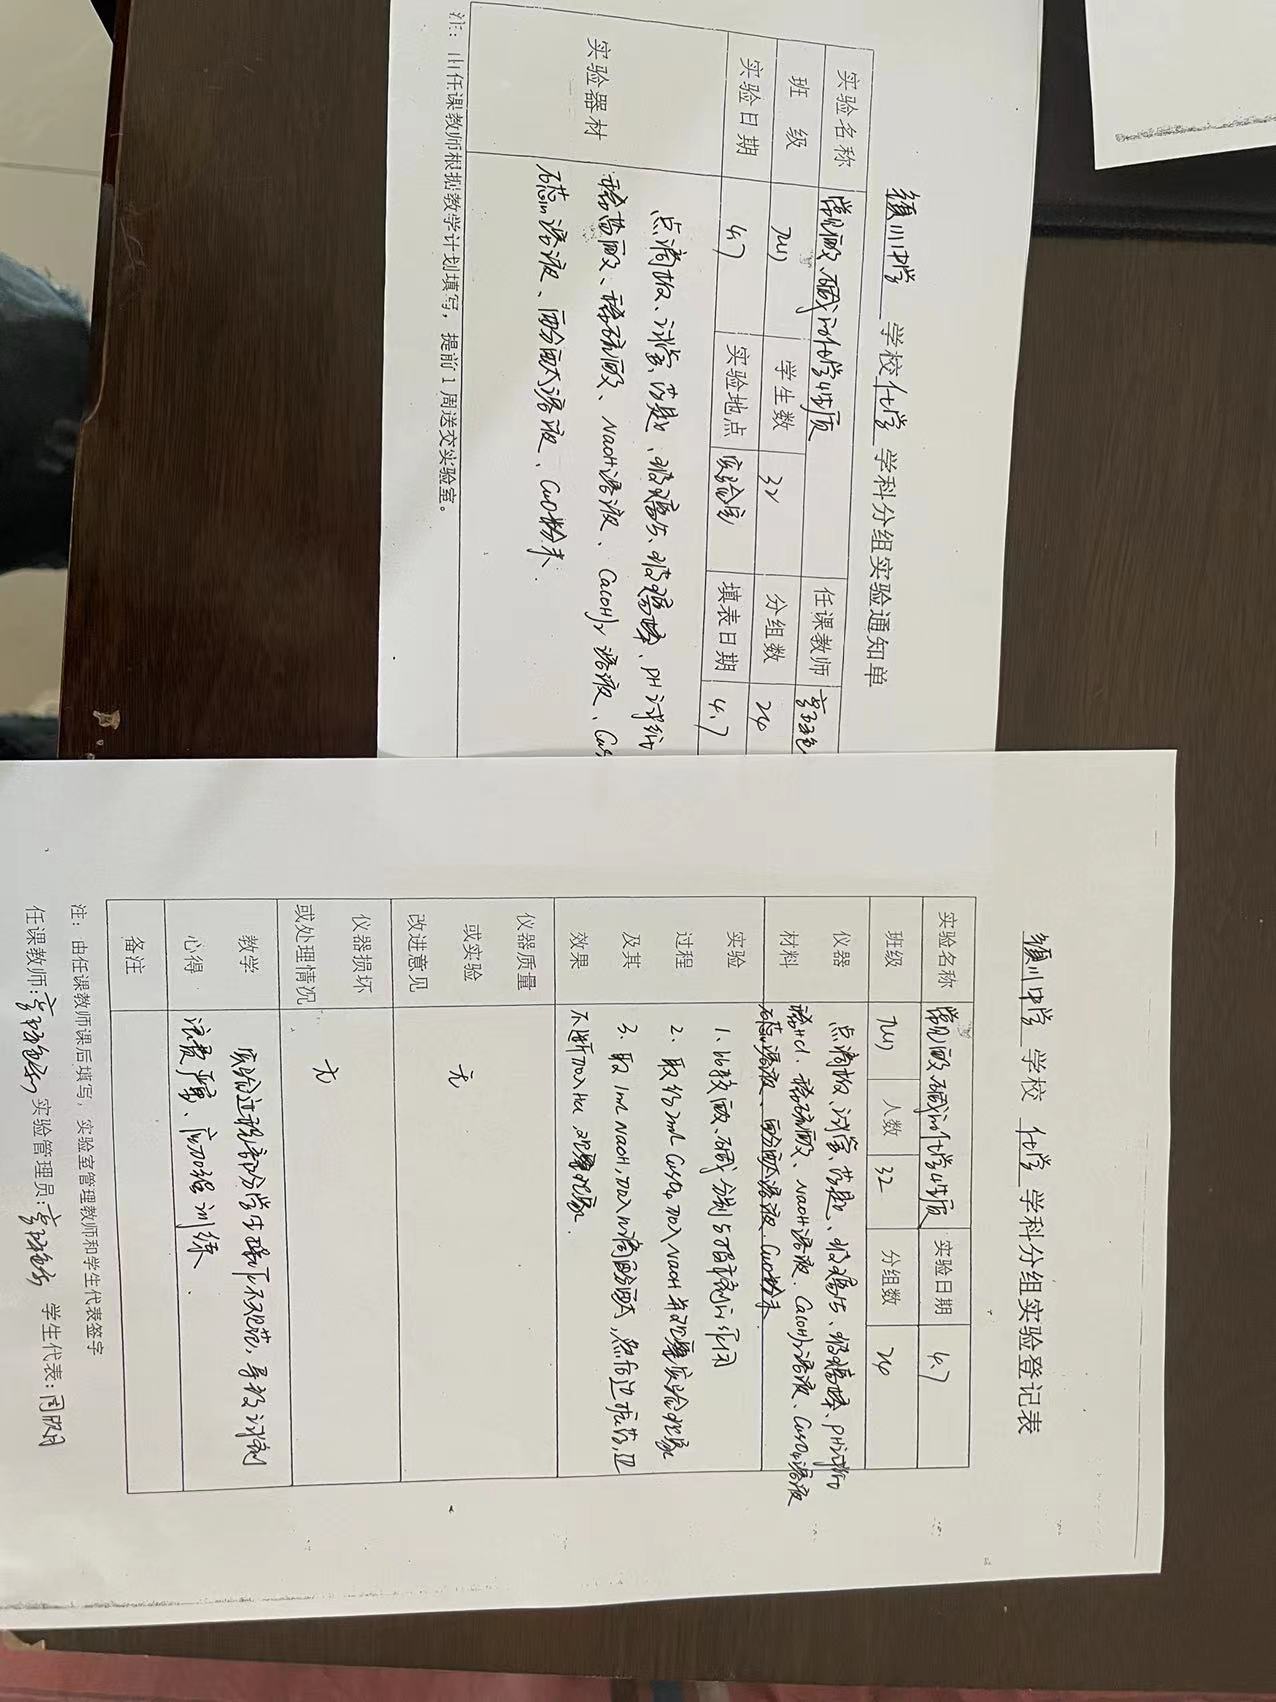 颍川中学 学校 化学 学科分组实验通知单
实验名称 常见酸、碱的化学性质 任课教师
班 级 九(1) 学生数 32 分组数 24
实验日期 4.7 实验地点 实验室 填表日期 4.7
实验器材
点滴板、试管、药匙、玻璃片、玻璃棒、PH试纸
稀盐酸、稀硫酸、NaOH溶液、Ca(OH)2溶液、CuS
石蕊溶液、酚酞溶液、CuO粉末.
注：由任课教师根据教学计划填写，提前1周送交实验室。
颍川中学 学校 化学 学科分组实验登记表
实验名称 常见酸、碱的化学性质 实验日期 4.7
班级 九(1) 人数 32 分组数 24
仪器材料
点滴板、试管、药匙、玻璃片、玻璃棒、PH试纸
稀HCl、稀硫酸、NaOH溶液、Ca(OH)2溶液、CuSO4溶液
石蕊溶液、酚酞溶液、CuO粉末
实验过程及其效果
1、比较酸、碱分别与指示剂的作用
2、取约2mL CuSO4加入NaOH并观察实验现象
3、取1mL NaOH,加入几滴酚酞,然后边振荡,边
不断加入HCl,观察现象.
仪器质量或实验改进意见 无
仪器损坏或处理情况 无
教学心得
实验过程部分学生操作不规范，导致试剂
浪费严重、应加强训练
备注
注：由任课教师课后填写，实验室管理教师和学生代表签字
任课教师: 实验管理员: 学生代表: